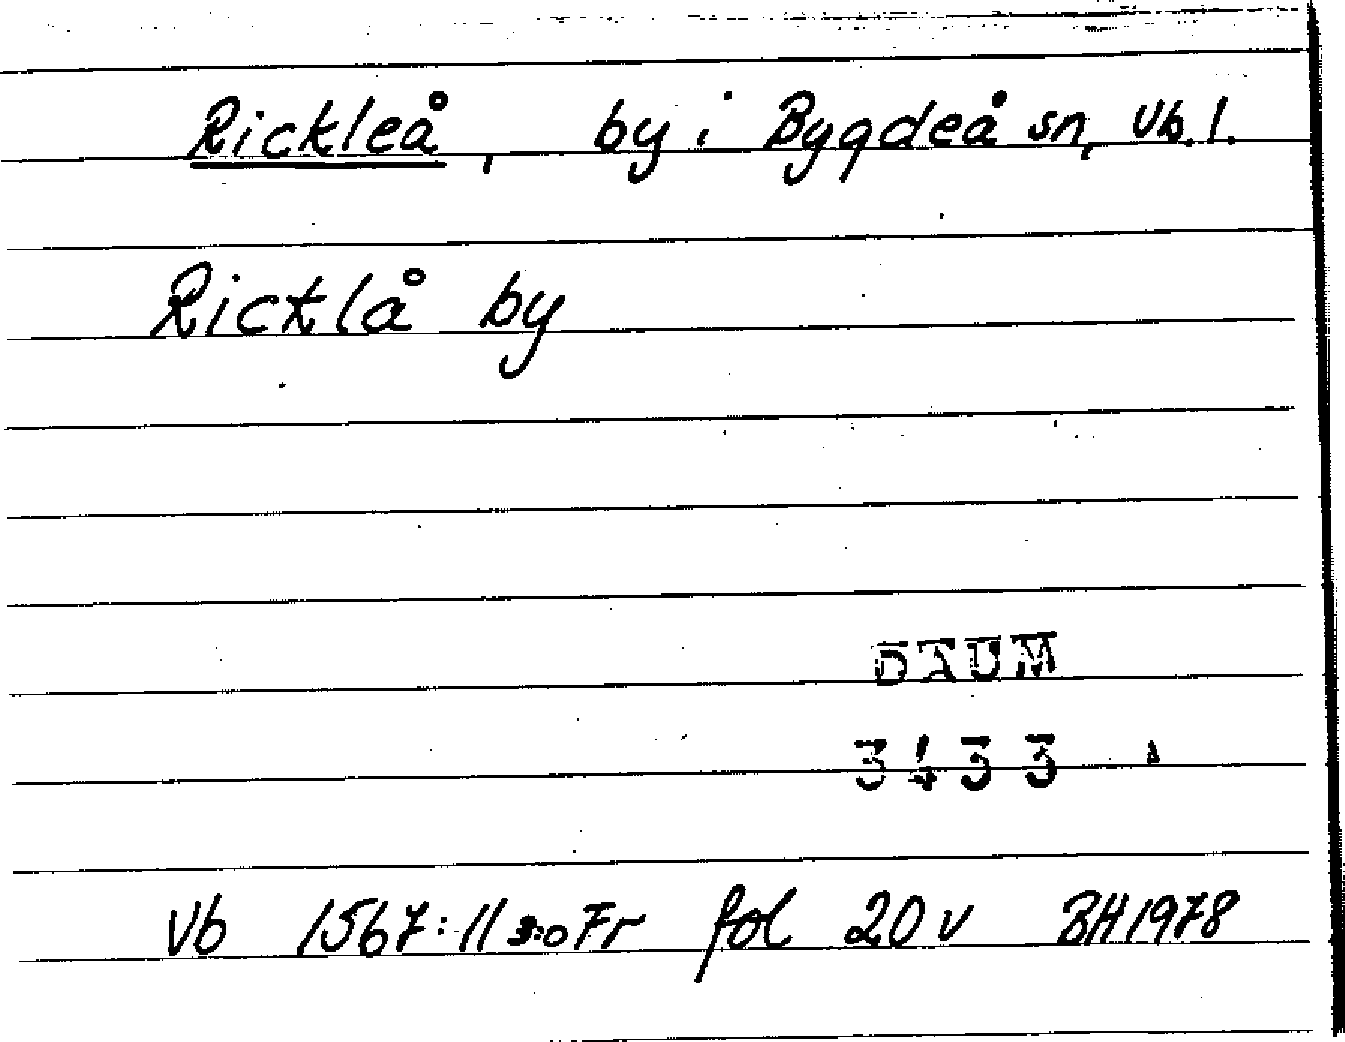 Rickleå, by i Bygdeå sn, Vb. l.
Ricklå by
DAUM
3433
Vb 1567:11 3:0 Fr fol 20 v BH 1978